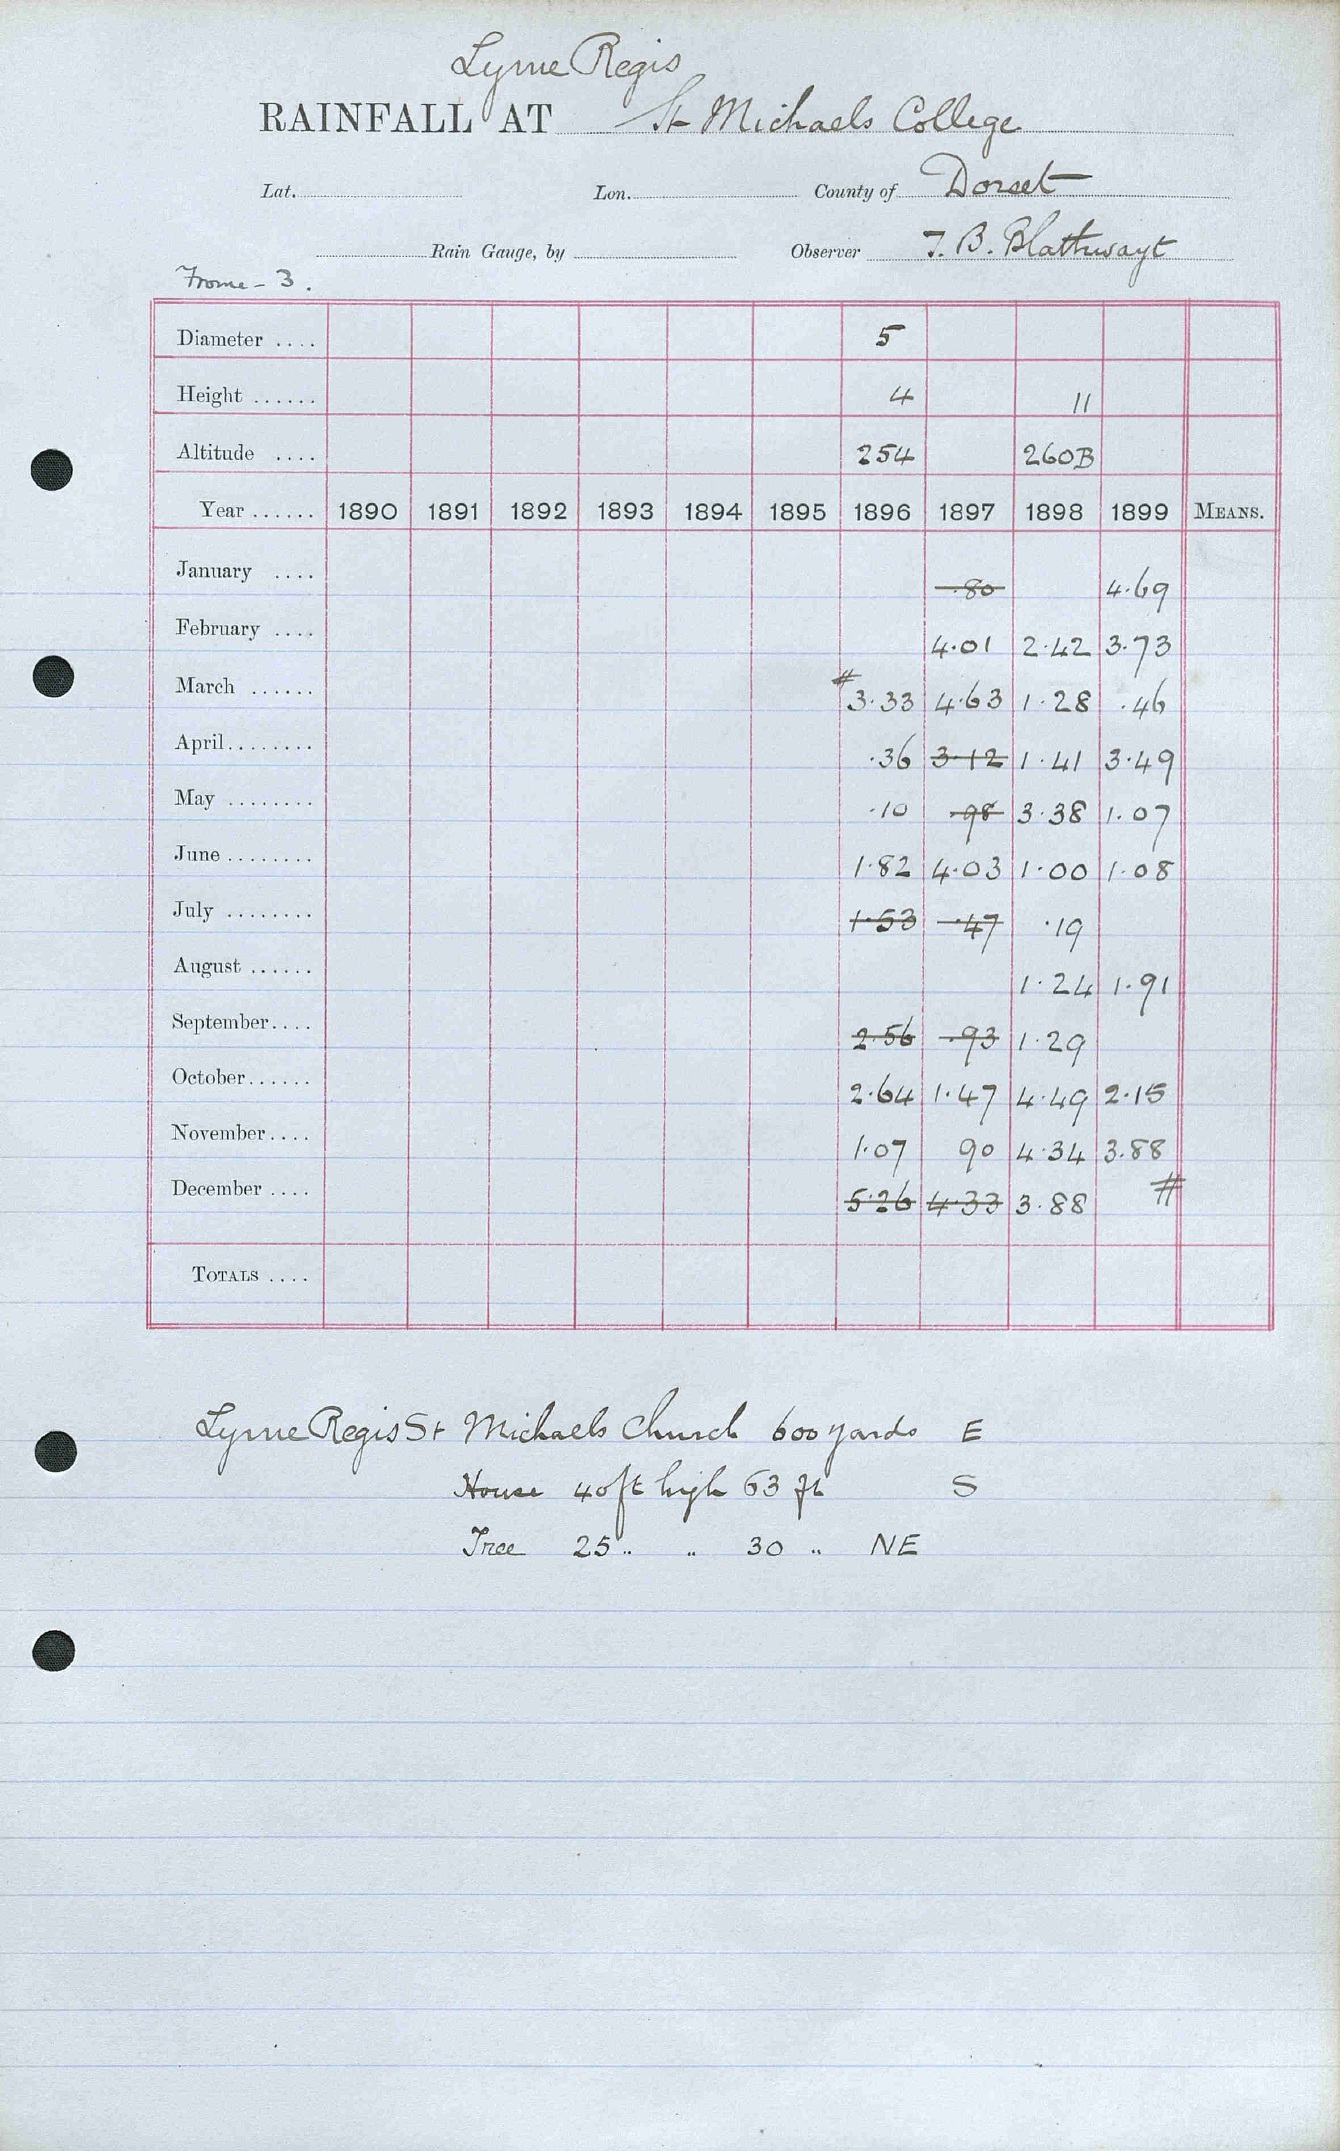 Lyme Regis
RAINFALL AT St Michaels College
Lat. Lon. County of Dorset
Rain Gauge, by Observer T. B. Blathwayt
Frome - 3.
Diameter .... 5
Height ...... 4 11
Altitude .... 254 260B
Year ...... 1890 1891 1892 1893 1894 1895 1896 1897 1898 1899 MEANS.
January .... .80 4.69
February .... 4.01 2.42 3.73
March ...... # 3.33 4.63 1.28 .46
April........ .36 3.12 1.41 3.49
May ........ .10 .98 3.38 1.07
June ........ 1.82 4.03 1.00 1.08
July ........ 1.53 .47 .19
August ...... 1.24 1.91
September.... 2.56 .93 1.29
October...... 2.64 1.47 4.49 2.15
November.... 1.07 90 4.34 3.88
December .... 5.26 4.33 3.88 #
TOTALS ....
Lyme Regis St Michaels Church 600 yards E
House 40 ft high 63 ft S
Tree 25 " " 30 " NE